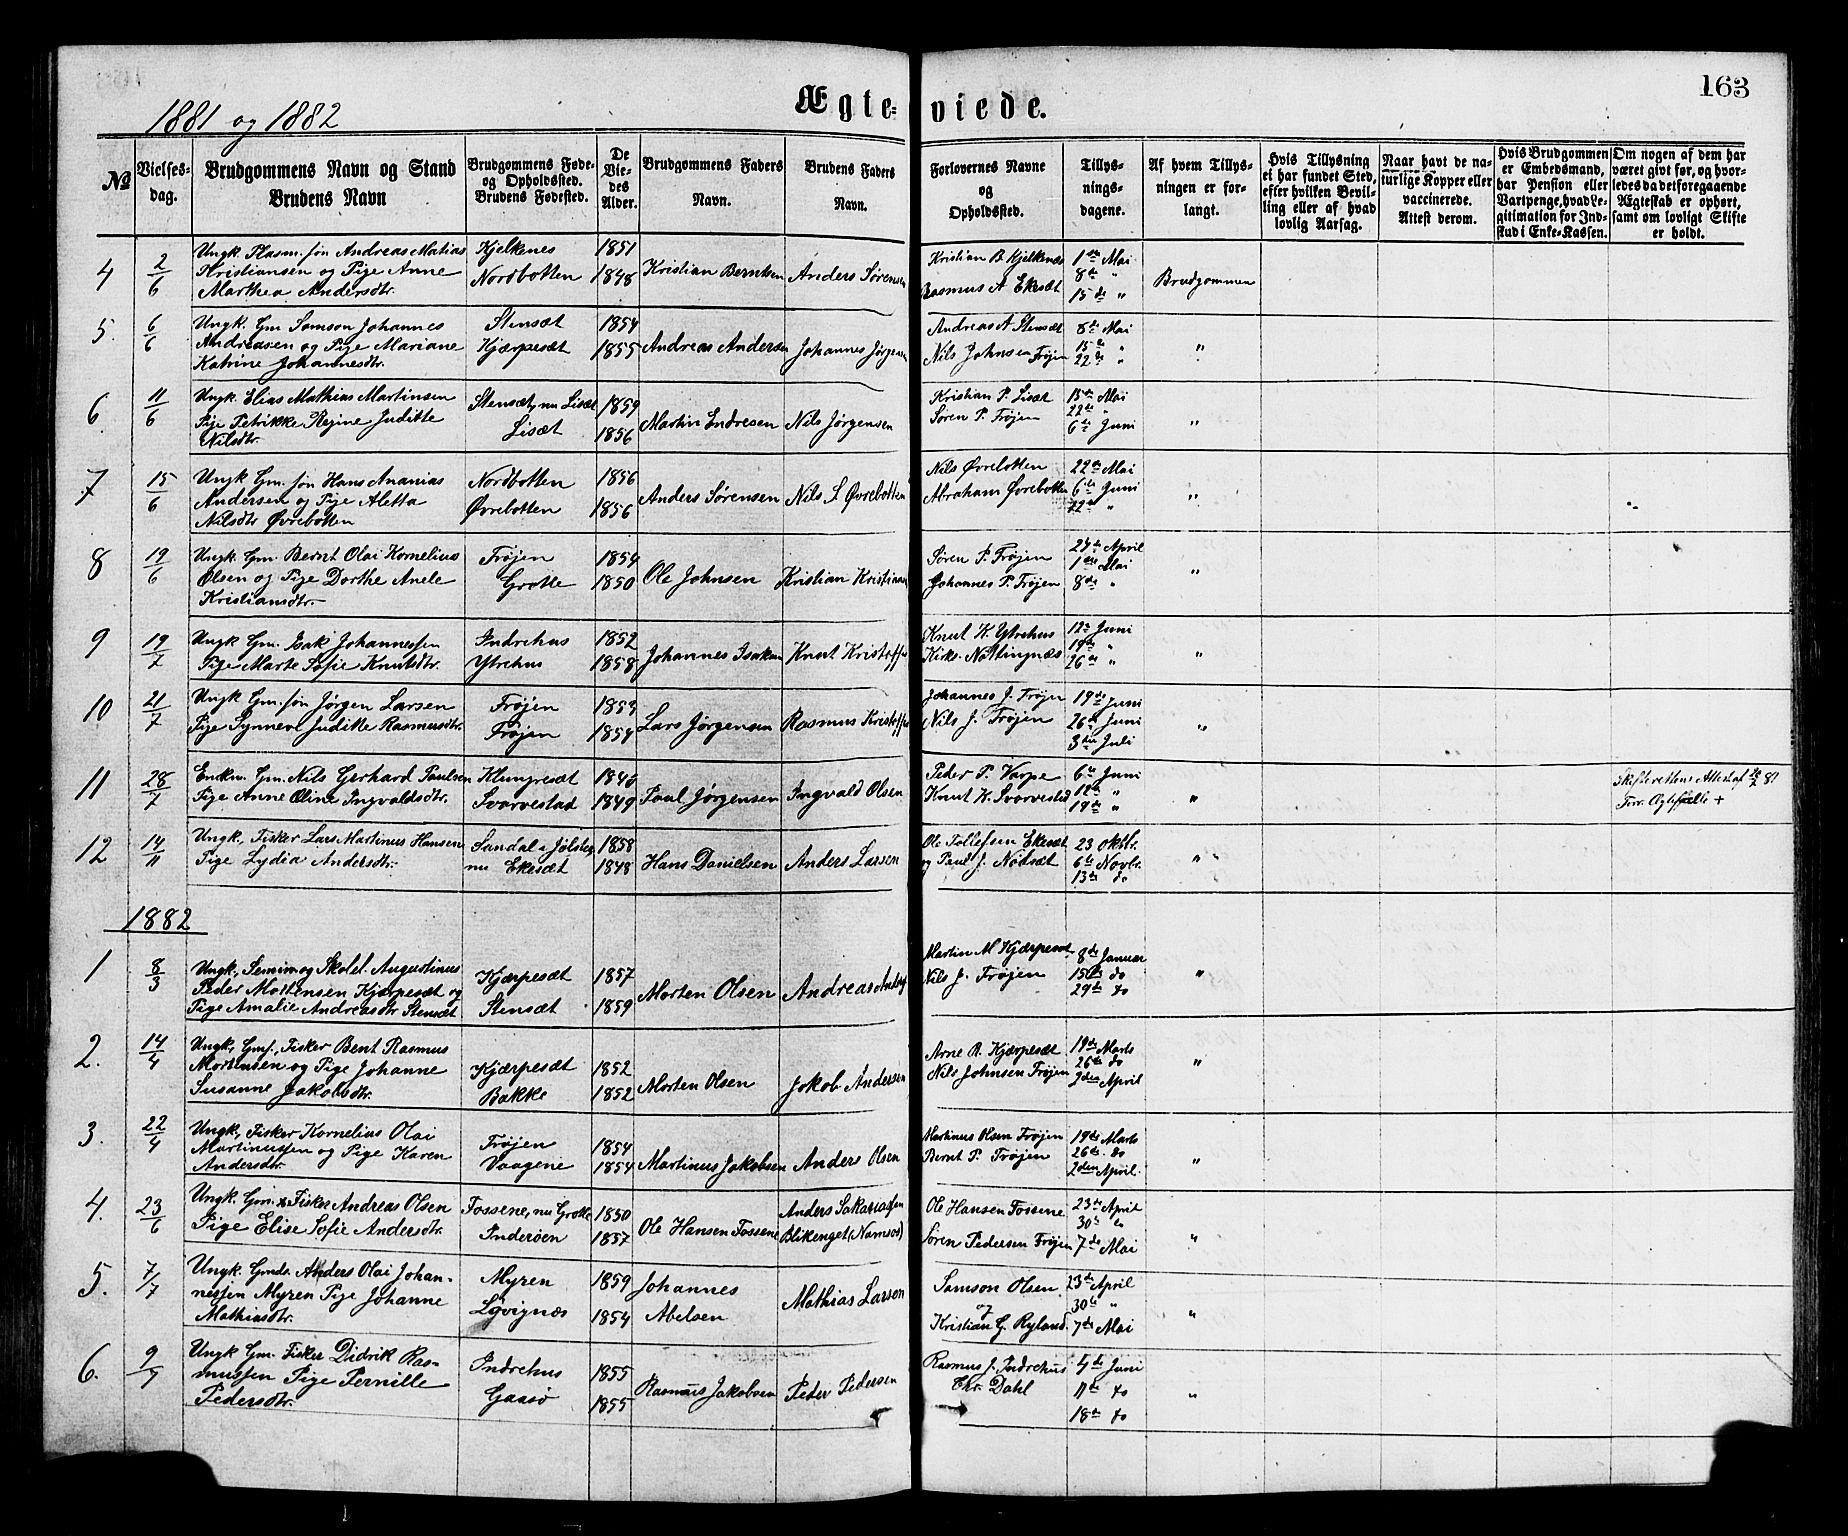 163
1881 og 1882
Ægteviede.
№
Vielses-
dag.
Brudgommens Navn og Stand
Brudens Navn
Brudgommens Føde-
og Opholdssted.
Brudens Fødested.
De
Vie-
des
Alder.
Brudgommens Faders
Navn.
Brudens Faders
Navn.
Forlovernes Navne
og
Opholdssted.
Tillys-
nings-
dagene.
Af hvem Tillys-
ningen er for-
langt.
Hvis Tillysning
ei har fundet Sted,
efter hvilken Bevil-
ling eller af hvad
lovlig Aarsag.
Naar havt de na-
turlige Kopper eller
vaccinerede.
Attest derom.
Hvis Brudgommen
er Embedsmand,
har Pension eller
Vartpenge, hvad Le-
gitimation for Ind-
skud i Enke-Kassen.
Om nogen af dem har
været givt før, og hvor-
ledes da det foregaaende
Ægteskab er ophørt,
samt om lovligt Skifte
er holdt.
4
2/6
Ungk. Plasm. søn Andreas Matias
Kristiansen og Pige Anne
Marthea Andersdtr.
Kjelknes
Nordbotten
1851
1848
Kristian Berntsen
Anders Sørensen
Kristian B Kjelknes
Rasmus A Ekesæt
1ste Mai
8de "
15de "
Brudgommen
5.
6/6
Ungk. Gm Samson Johannes
Andreasen og Pige Mariane
Katrine Johannesdtr.
Stensæt
Kjærpesæt
1854
1855
Andreas Andersen
Johannes Jørgensen
Andreas A Stensæt
Nils Johnsen Frøjen
8de Mai
15de "
22de "
"
6.
11/6
Ungk. Elias Mathias Martinsen
Pige Petrikke Regine Juditte
Nilsdtr.
Stensæt, nu Lisæt
Lisæt
1859
1856
Martin Endresen
Nils Jørgensen
Kristian P. Lisæt
Søren P. Frøjen
15de Mai
22de "
6te Juni
"
7
15/6
Ungk Gm. søn Hans Ananias
Andersen og Pige Aletta
Nilsdtr Øvrebotten
Nordbotten
Øvrebotten
1856
1856
Anders Sørensen
Nils S Øvrebotten
Nils Øvrebotten
Abraham Øvrebotten
22de Mai
6te Juni
12te "
"
8
19/6
Ungk. Gm. Bernt Olai Kornelius
Olsen og Pige Dorthe Anele
Kristiansdtr.
Frøjen
Grotte
1854
1850
Ole Johnsen
Kristian Kristiansen
Søren P. Frøjen
Johannes P. Frøjen
24de April
1ste Mai
8de "
"
9
19/7
Ungk Gm. Isak Johannessen
Pige Marte Sofie Knutsdtr.
Indrehus
Ytrehus
1852
1858
Johannes Isaksen
Knut Kristoffer
Knut K. Ytrehus
Kirks. Nøttingnæs
12te Juni
19de "
26de "
"
10
21/7
Ungk Gm. søn Jørgen Larsen
Pige Synnev Juditte Rasmusdtr.
Frøjen
Frøjen
1859
1854
Lars Jørgensen
Rasmus Kristoffer
Johannes J. Frøjn
Nils J. Frøjen
19de Juni
26de Juni
3die Juli
"
11
28/7
Enkm. Gm. Nils Gerhard Paulsen
Pige Anne Oline Ingvaldsdtr.
Klungresæt
Svarvestad
1849
Paul Jørgensen
Ingvald Olsen
Peder P. Varpe
Knut K. Svarvestad
6te Juni
12te "
19de "
"
Skifterettens Attest af
Forr. Ægtefælle +
12
14/11
Ungk, Fisker Lars Martinus Hansen
Pige Lydia Andersdtr.
Sandal i Jølster,
nu Ekesæt
1858
1848
Hans Danielsen
Anders Larsen
Ole Tollefsen Ekesæt
og Paul J. Nødsæt
23 Oktbr.
6te Novbr.
13de do
"
1882
1
8/3
Ungk, Semim og Skolel. Augustinus
Peder Mortensen Kjærpesæt og
Pige Amalie Andreasdtr Stensæt
Kjærpesæt
Stensæt
1857
1859
Morten Olsen
Andreas Anders
Martin M Kjærpesæt
Nils J. Frøjen
8de Januar
15de do
29de do
"
2.
14/4
Ungk, Gmf., Fisker Bent Rasmus
Mortensen og Pige Johanne
Susanne Jakobsdtr.
Kjærpesæt
Bakke
1852
1852
Morten Olsen
Jakob Andersen
Arne B. Kjærpesæt
Nils Johnsen Frøjen
19de Marts
26de do
2den April
"
3.
22/4
Ungk, Fisker Kornelius Olai
Martinussen og Pige Karen
Andersdtr.
Frøjen
Vaagene
1854
1854
Martinus Jakobsen
Anders Olsen
Martinus Olsen Frøjen
Bernt P. Frøjen
19de Marts
26de do
2den April
"
4.
23/6
Ungk. Gm. & Fisker Andreas Olsen
Pige Elise Sofie Andersdtr.
Fossene, nu Grotte
Inderøen
1850
1857
Ole Hansen Fossene
Anders Sakariassen
Blikenget (Namsos)
Ole Hansen Fossene
Søren Pedersen Frøjen
23de April
30te do
7de Mai
"
5.
7/7
Ungk. Gmds. Anders Olai Johan-
nessen Myren Pige Johanne
Mathiasdtr.
Myren
Løvignæs
1859
1854
Johannes
Abelsen
Mathias Larsen
Samson Olsen
og
Kristian G. Ryland
23de April
30te "
7de Mai
"
6.
9/7
Ungk Gm. Fisker Didrik Ras-
mussen Pige Pernille
Pedersdtr.
Indrehus
Gaasø
1855
1855
Rasmus Jakobsen
Peder Pedersen
Rasmus J. Indrehus
Chr. Dahl
4de Juni
11te do
18de do
"